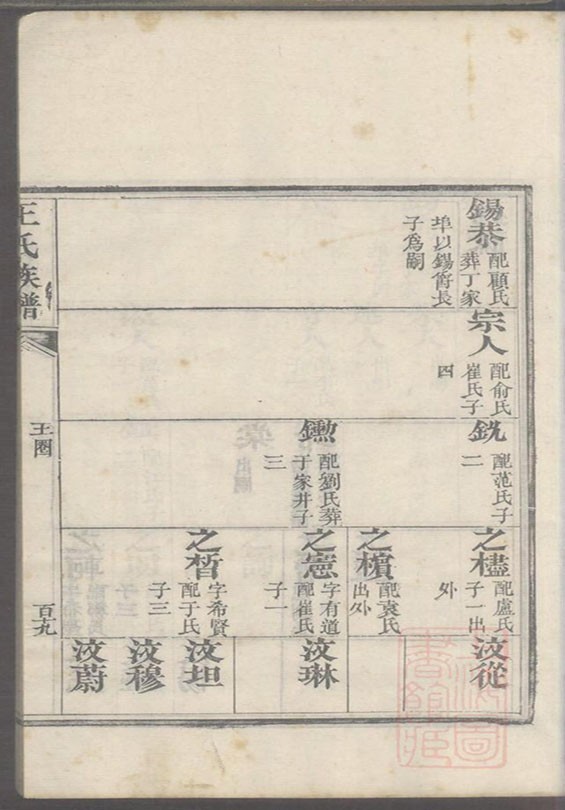 錫恭
配顧氏
葬丁家
埠以錫胷長
子爲嗣
宗人
配俞氏
崔氏子
四
銑
配范氏子
二
鐭
配劉氏葬
于家井子
三
之櫣
配盧氏
子一出
外
之櫃
配袁氏
出外
之憲
字有道
配崔氏
子一
之晳
字希賢
配于氏
子三
汶從
汶琳
汶坦
汶穆
汶蔚
王氏族譜
王圈
百十九